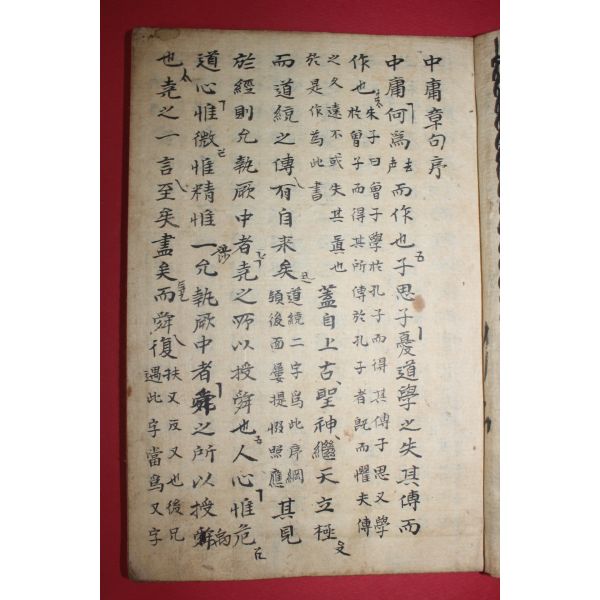 中庸章句序
中庸何爲去声而作也子思子憂道學之失其傳而
作也朱子曰曾子學於孔子而得其傳子思又學
於曾子而得其所傳於孔子者旣而懼夫傳
之久遠不或失其眞也
於是作為此書
蓋自上古聖神繼天立極
而道統之傳有自來矣道統二字爲此序綱
領後面屢提掇照應
其見
於經則允執厥中者堯之所以授舜也人心惟危
道心惟微惟精惟一允執厥中者舜之所以授禹
也堯之一言至矣盡矣而舜復扶又反又也後凡
遇此字當爲又字